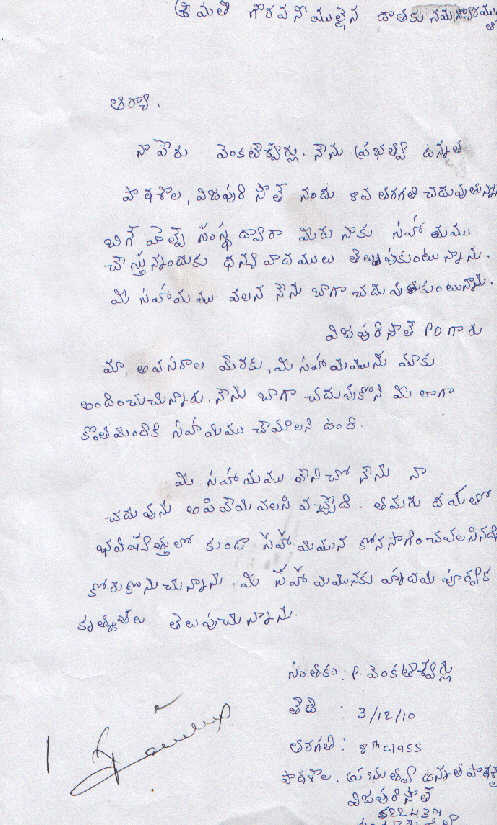 శ్రీమతి గౌరవనీయులైన దాతకు నమస్కారములు
ఆర్యా.
నా పేరు వెంకటేశ్వర్లు. నేను ప్రభుత్వ ఉన్నత
పాఠశాల, విజపురి సౌత్ నందు 8వ తరగతి చదువుతున్నా
బిగ్ హెల్ప్ సంస్థ ద్వారా మీరు నాకు సహాయము
చేస్తున్నందుకు ధన్యవాదములు తెలుపుకుంటున్నాను.
మీ సహాయము వలన నేను బాగా చదువుకుంటున్నాను.
విజపురిసౌత్ PD గారు
మా అవసరాల మేరకు, మీ సహాయమును మాకు
అందించుచున్నారు. నేను బాగా చదువుకొని మీ లాగా
కొంతమందికి సహాయము చేయాలని ఉంది.
మీ సహాయము లేనిచో నేను నా
చదువును ఆపివేయవలసి వచ్చేది. తమరు దయతో
భవిష్యత్తులో కుడా సహాయమును కొనసాగించవలసినది
కోరుకొనుచున్నాను. మీ సహాయమునకు హృదయ పూర్వక
కృతజ్ఞతలు తెలుపుచున్నాను.
సంతకం : P. వెంకటేశ్వర్లు
తేది : 3/12/10
తరగతి : 8th class
పాఠశాల. ప్రభుత్వ ఉన్నత పాఠశాల
విజపురిసౌత్
522439